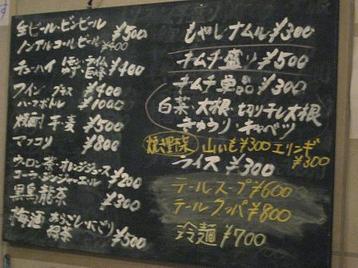 生ビール・ビンビール ¥500
ノンアルコールビール ¥400
チューハイ レモン・ライム ¥400
ワイン グラス ¥400
ハーフボトル ¥1000
焼酎 芋麦 ¥500
マッコリ ¥800
ウーロン茶・オレンジジュース
コーラ・ジンジャーエール ¥200
黒烏龍茶 ¥300
梅酒 あらごし・にごり ¥500
もやしナムル ¥300
キムチ盛り ¥500
キムチ単品 ¥300
白菜 大根 切り干し大根
キュウリ キャベツ
焼野菜 山いも ¥300 エリンギ ¥300
ライス ¥300
テールスープ ¥600
テールクッパ ¥800
冷麺 ¥700